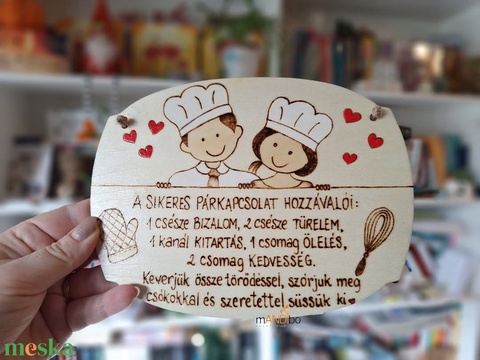 A SIKERES PÁRKAPCSOLAT HOZZÁVALÓI:
1 csésze BIZALOM, 2 csésze TÜRELEM,
1 kanál KITARTÁS, 1 csomag ÖLELÉS,
2 csomag KEDVESSÉG.
Keverjük össze törődéssel, szórjuk meg
csókokkal és szeretettel süssük ki
meska